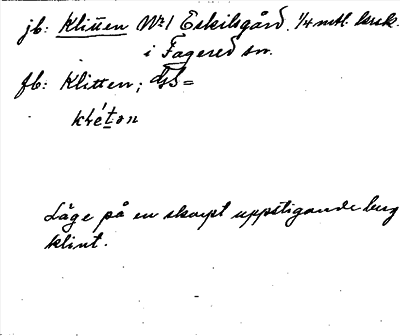 jb: Klitten № 1 Eskilsgård. 1/4 mtl krsk.
i Fagered sn.
fb: Klitten; ds =
kle't on
Läge på en skarpt uppstigande berg
klint.